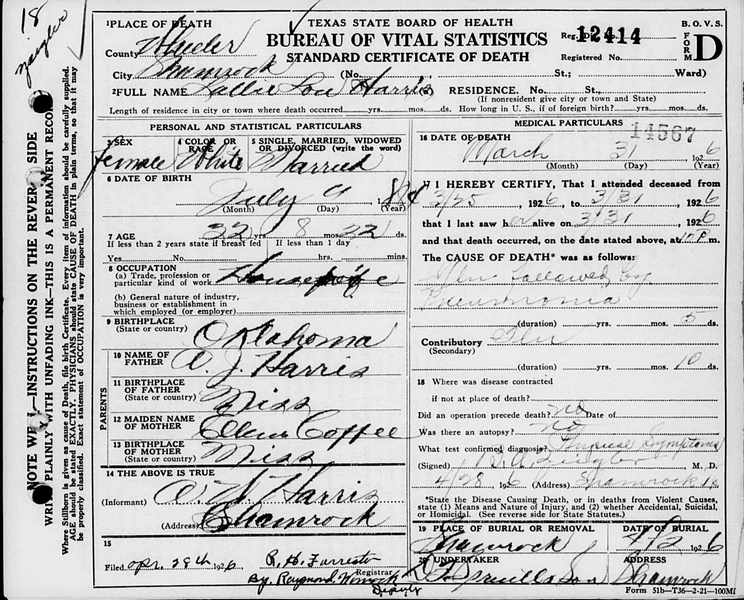 18
Zeigler
1 PLACE OF DEATH
TEXAS STATE BOARD OF HEALTH
BUREAU OF VITAL STATISTICS
STANDARD CERTIFICATE OF DEATH
Reg. Dis. 12414
Registered No.
B. O. V. S.
FORM D
County Wheeler
City Shamrock (No. St.; Ward)
2 FULL NAME Sallie Lou Harris RESIDENCE. No. St.,
(If nonresident give city or town and State)
Length of residence in city or town where death occurred yrs. mos. ds. How long in U. S., if of foreign birth? yrs. mos. ds.
PERSONAL AND STATISTICAL PARTICULARS
3 SEX Female
4 COLOR OR RACE White
5 SINGLE, MARRIED, WIDOWED OR DIVORCED (write the word) Married
6 DATE OF BIRTH
July 9
(Month) (Day) (Year)
7 AGE 32 yrs. 8 mos. 22 ds.
If less than 2 years state if breast fed If less than 1 day
Yes No hrs. mins.
8 OCCUPATION
(a) Trade, profession or particular kind of work Housewife
(b) General nature of industry, business or establishment in which employed (or employer)
9 BIRTHPLACE
(State or country) Oklahoma
PARENTS
10 NAME OF FATHER A. J. Harris
11 BIRTHPLACE OF FATHER
(State or country) Miss
12 MAIDEN NAME OF MOTHER Ellen Coffee
13 BIRTHPLACE OF MOTHER
(State or country) Miss
14 THE ABOVE IS TRUE
(Informant) Harris
(Address) Shamrock
15
Filed Apr. 29th 1926 R. H. Forrester
Registrar
By. Raymond
Deputy
MEDICAL PARTICULARS
14567
16 DATE OF DEATH
March 31 1926
(Month) (Day) (Year)
17 I HEREBY CERTIFY, That I attended deceased from
3/25, 1926, to 3/31, 1926
that I last saw her alive on 3/31 1926
and that death occurred, on the date stated above, at m.
The CAUSE OF DEATH* was as follows:
Flu followed by
Pneumonia
(duration) yrs. mos. 5 ds.
Contributory Flu
(Secondary)
(duration) yrs. mos. 10 ds.
18 Where was disease contracted
if not at place of death?
Did an operation precede death? no Date of
Was there an autopsy? No
What test confirmed diagnosis? Physical Symptoms
(Signed) Zeigler M. D.
4/28 1926 (Address) Shamrock
*State the Disease Causing Death, or in deaths from Violent Causes, state (1) Means and Nature of Injury, and (2) whether Accidental, Suicidal, or Homicidal. (See reverse side for State Statutes.)
19 PLACE OF BURIAL OR REMOVAL DATE OF BURIAL
Shamrock 4/2 1926
20 UNDERTAKER ADDRESS
& Son Shamrock
Form 51b—T36—2-21—100MI
NOTE WELL—INSTRUCTIONS ON THE REVERSE SIDE
WRITE PLAINLY WITH UNFADING INK—THIS IS A PERMANENT RECORD
Where Stillborn is given as cause of Death, file birth Certificate. Every item of information should be carefully supplied.
AGE should be stated EXACTLY. PHYSICIANS should state CAUSE OF DEATH in plain terms, so that it may
be properly classified. Exact statement of OCCUPATION is very important.